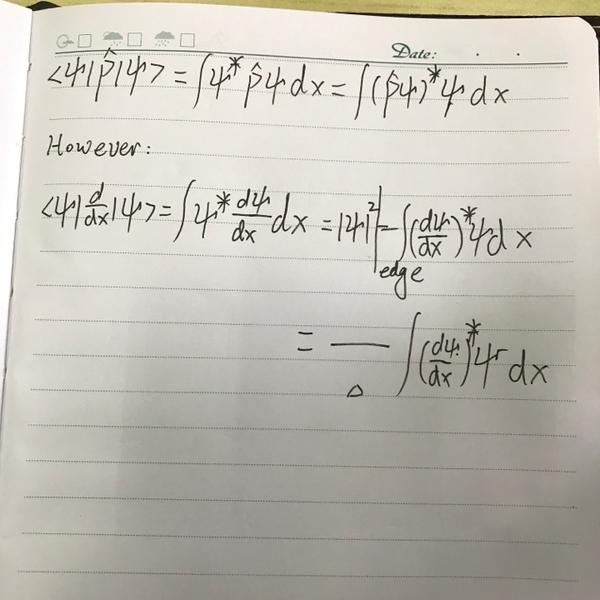 Date: . .
<ψ|p̂|ψ> = ∫ψ* p̂ψ dx = ∫(p̂ψ)* ψ dx
However:
<ψ|d/dx|ψ> = ∫ψ* dψ/dx dx = |ψ|²|edge - ∫(dψ/dx)* ψ dx
= - ∫(dψ/dx)* ψ dx
△